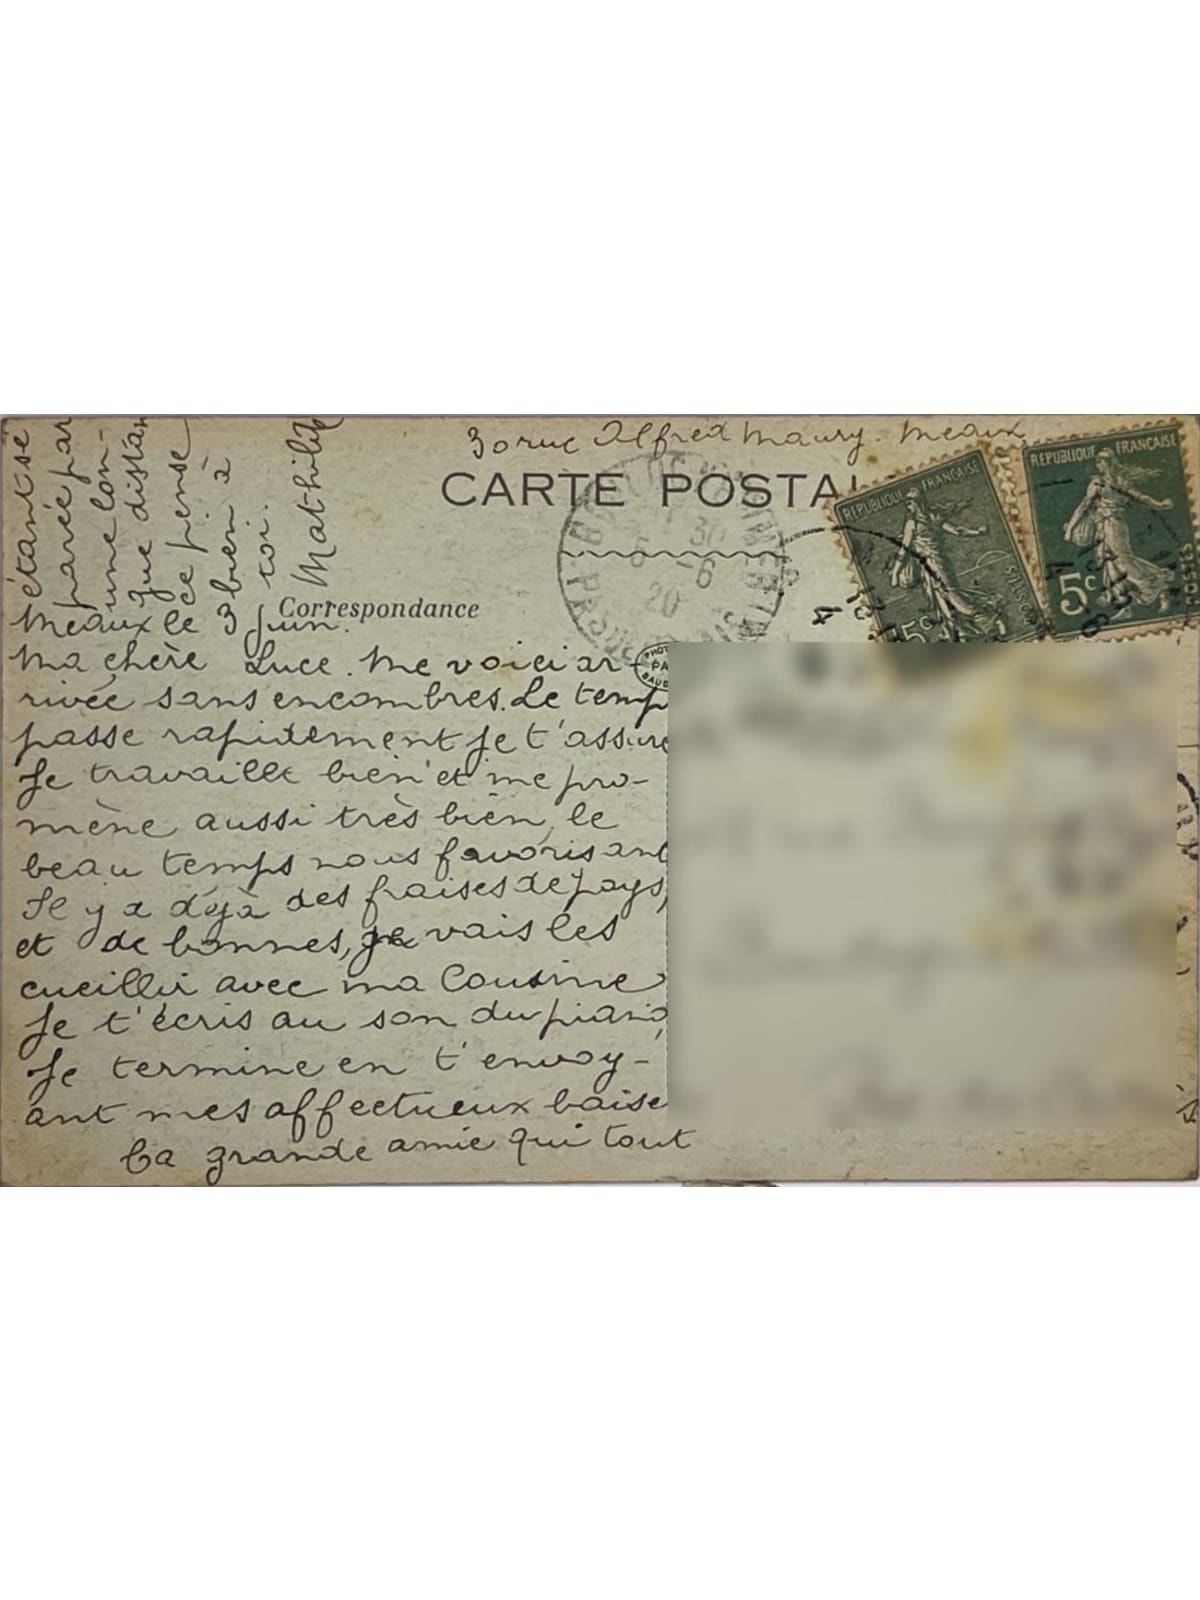 30 rue Alfred Maury. Meaux
CARTE POSTAL
REPUBLIQUE FRANÇAISE
15c
REPUBLIQUE FRANÇAISE
5c
POSTES
30
6 -6
20
4
Correspondance
Meaux le 3 Juin.
Ma chère Luce. Me voici ar-
rivée sans encombres. Le temp
passe rapidement je t'assure
Je travaille bien et me pro-
mène aussi très bien, le
beau temps nous favorisant
Il y a déjà des fraises de pays,
et de bonnes, je vais les
cueillir avec ma Cousine
Je t'écris au son du piano,
Je termine en t'envoy-
ant mes affectueux baise
Ta grande amie qui tout
étant sé
parée par
une lon-
gue distan
ce pense
bien à
toi.
Mathilde